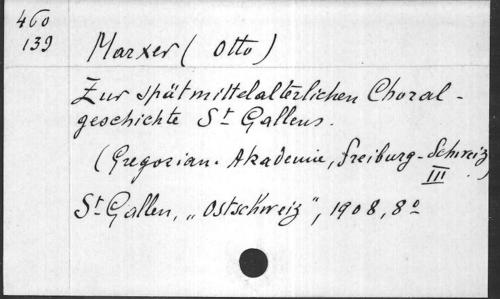 460
139
Marxer (Otto)
Zur spätmittelalterlichen Choral-
geschichte St Gallens.
(Gregorian. Akademie, Freiburg-Schweiz
III)
St Gallen, „Ostschweiz", 1908, 8°